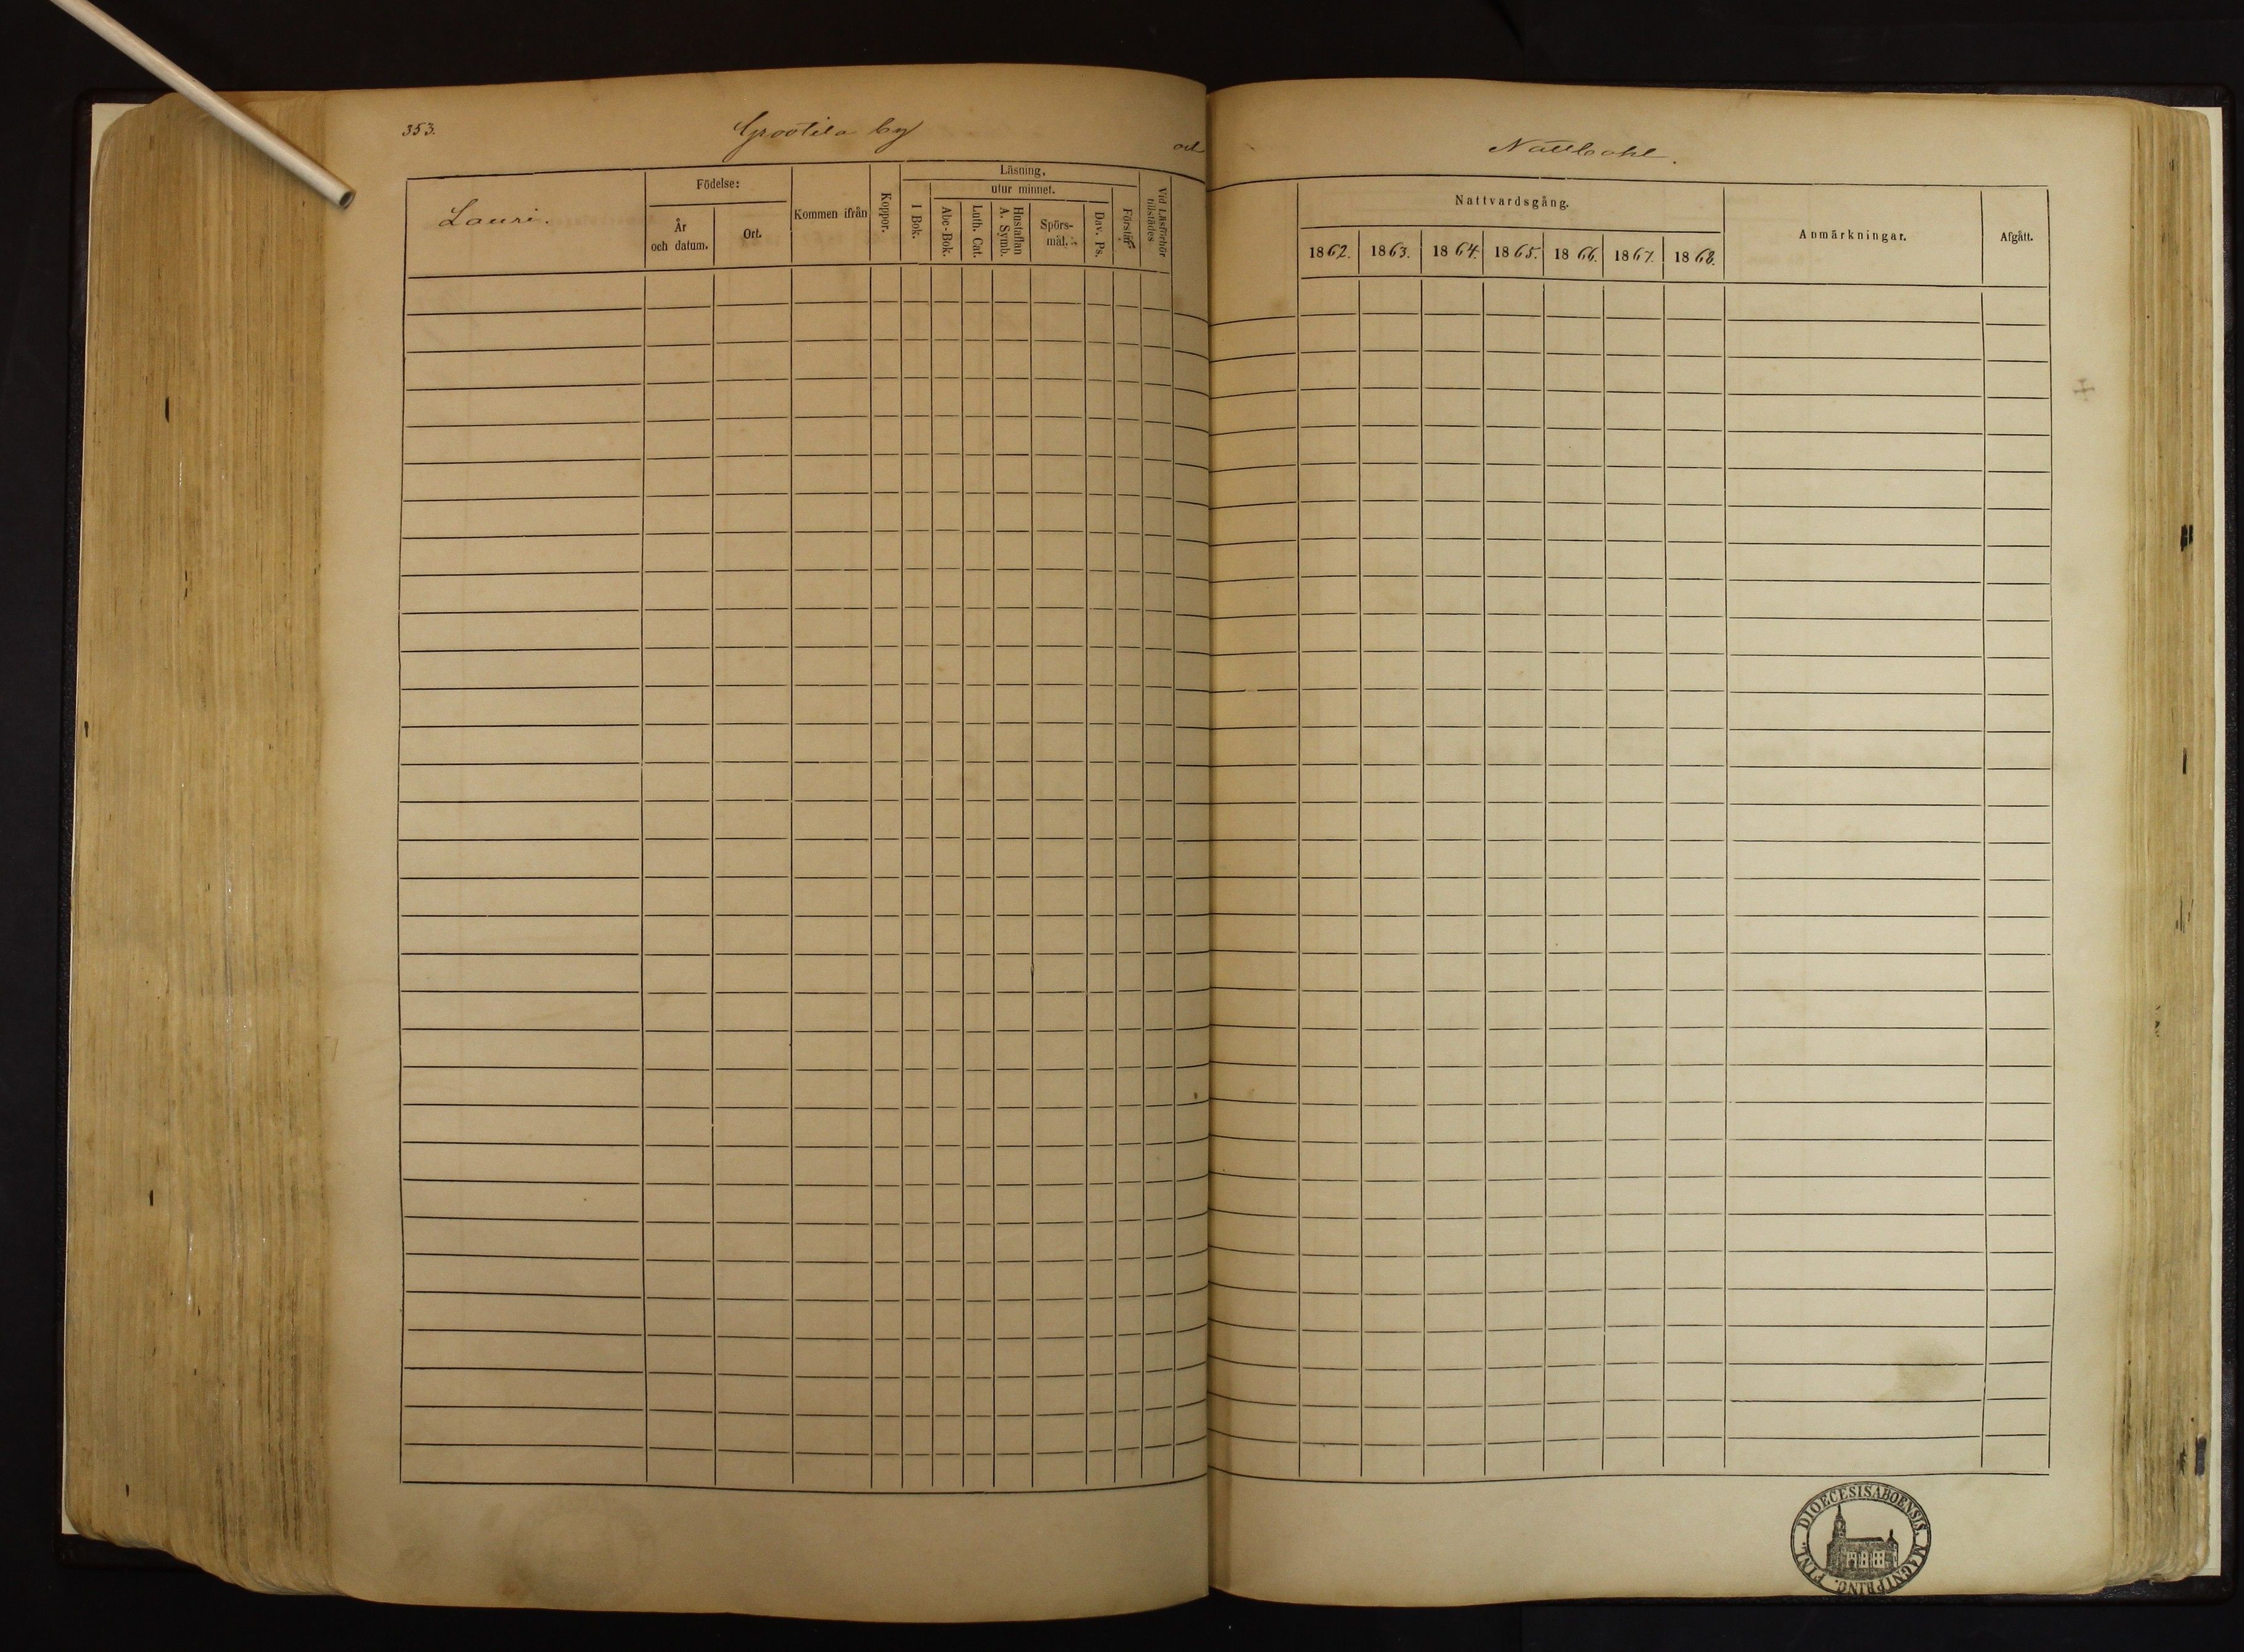 353. Grootila by och Nattbohl.
Lauri.
Födelse:
År och datum.
Ort.
Kommen ifrån
Koppor.
Läsning,
utur minnet.
I Bok.
Abc-Bok.
Luth. Cat.
Hustaflan A. Symb.
Spörs-mål.
Dav. Ps.
Förstår
Vid Läsförhör tillstädes
Nattvardsgång.
1862. 1863. 1864. 1865. 1866. 1867. 1868.
Anmärkningar.
Afgått.
DIOECESIS ABOENSIS. MAGNI PRINC. FINL.